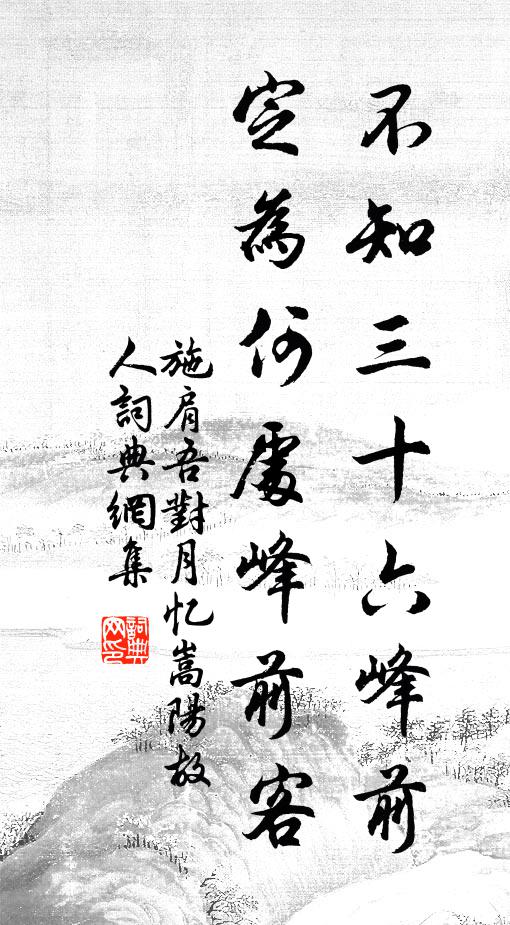 不知三十六峰前
定為何處峰前客
施肩吾對月忆嵩陽故
人詞典網集
詞典
网印